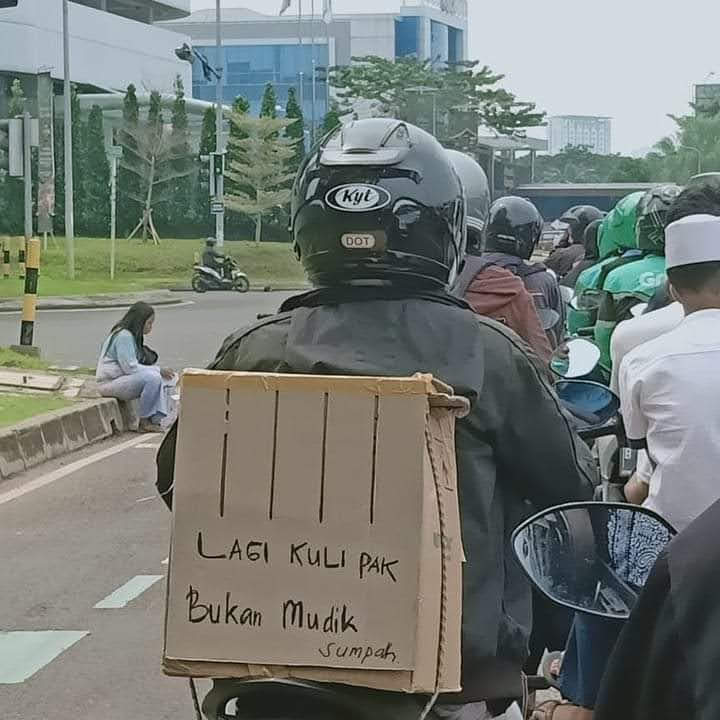 Kyt
DOT
LAGI KULI PAK
Bukan Mudik
Sumpah